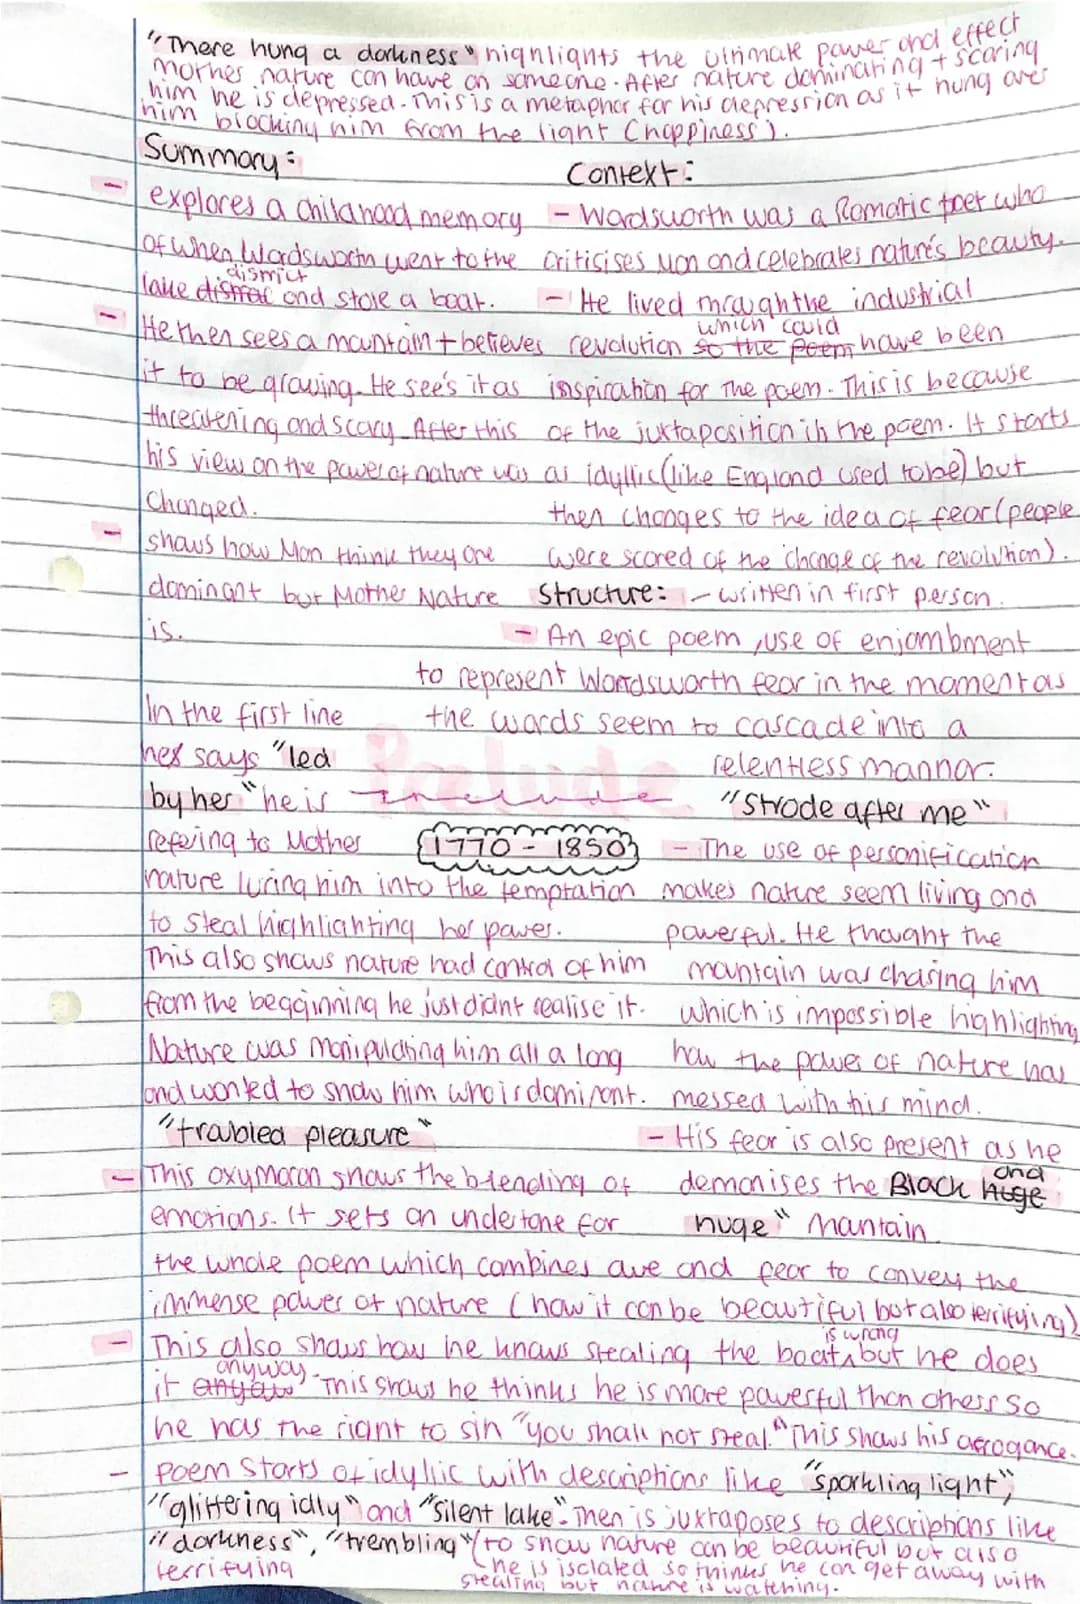 "There hung a darkness" highlights the ultimate power and effect
mother nature can have on someone. After nature dominating + scaring
him he is depressed. This is a metaphor for his depression as it hung over
him blocking him from the light (happiness).
Summary:
- explores a childhood memory
of when Wordsworth went to the
district
lake and stole a boat.
- He then sees a mountain + believes
it to be growing. He see's it as
threatening and scary. After this
his view on the power of nature was
changed.
- shows how Man think they are
dominant but Mother Nature
is.
Context:
- Wordsworth was a Romatic poet who
critisises man and celebrates nature's beauty.
- He lived through the industrial
which could
revolution so the poem have been
inspiration for the poem. This is because
of the juxtaposition in the poem. It starts
as idyllic (like England used to be) but
then changes to the idea of fear (people
were scared of the change of the revolution).
Structure: - written in first person.
- An epic poem, use of enjambment
to represent Wordsworth fear in the moment as
the words seem to cascade into a
relentless mannor.
Prelude
1770 - 1850
In the first line
he says "led
by her" he is
refering to Mother
nature luring him into the temptation
to steal highlighting her power.
This also shows nature had control of him
from the begginning he just didnt realise it.
Nature was manipulating him all a long
and wanted to show him who is dominant.
"Strode after me"
- The use of personification
makes nature seem living and
powerful. He thought the
mantain was chasing him
which is impossible highlighting
how the power of nature has
messed with his mind.
- His fear is also present as he
and
demonises the Black Huge
huge" mantain.
"troubled pleasure"
- This oxymoron shows the blending of
emotions. It sets an undertone for
the whole poem which combines awe and fear to convey the
immense power of nature (how it can be beautiful but also terrifying).
is wrong
- This also shows how he knows stealing the boat, but he does
anyway
it . This shows he thinks he is more powerful than others so
he has the right to sin "you shall not steal." This shows his arrogance.
- poem starts of idyllic with descriptions like "sparkling light",
"glittering idly" and "silent lake". Then is juxtaposes to descriptions like
"darkness", "trembling" (to show nature can be beautiful but also
terrifying
he is isolated so thinks he can get away with
stealing but nature is watching.